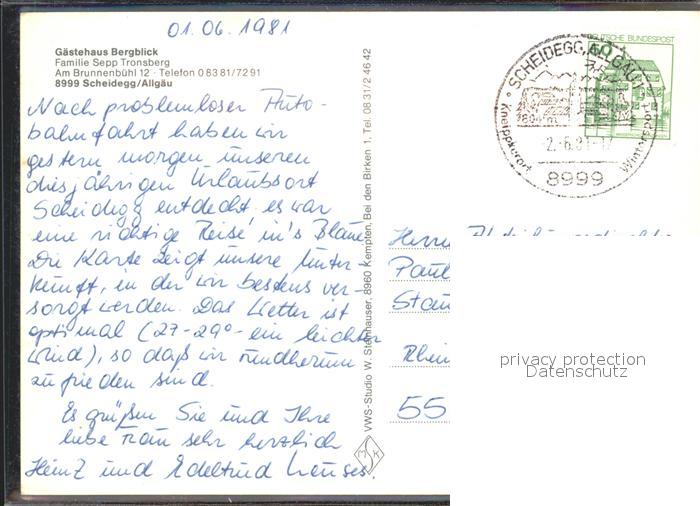 01.06.1981
Gästehaus Bergblick
Familie Sepp Tronsberg
Am Brunnenbühl 12 · Telefon 0 83 81/72 91
8999 Scheidegg/Allgäu
Nach problemloser Auto-
bahnfahrt haben wir
gestern morgen unseren
diesjährigen Urlaubsort
Scheidegg entdeckt, es war
eine richtige Reise in's Blaue.
Die Karte zeigt unsere Unter-
kunft, in der wir bestens ver-
sorgt werden. Das Wetter ist
optimal (27-29° - ein leichter
Wind), so daß wir rundherum
zufrieden sind.
Es grüßen Sie und Ihre
liebe Frau sehr herzlich
Heinz und Edeltrud
VWS-Studio W. Steinhauser, 8960 Kempten, Bei den Birken 1, Tel. 08 31/2 46 42
SCHEIDEGG, ALLGÄU
Kneippkurort
Wintersport
-2.-6.81-
8999
DEUTSCHE BUNDESPOST
Herrn
Paul
Rhein
55
privacy protection
Datenschutz